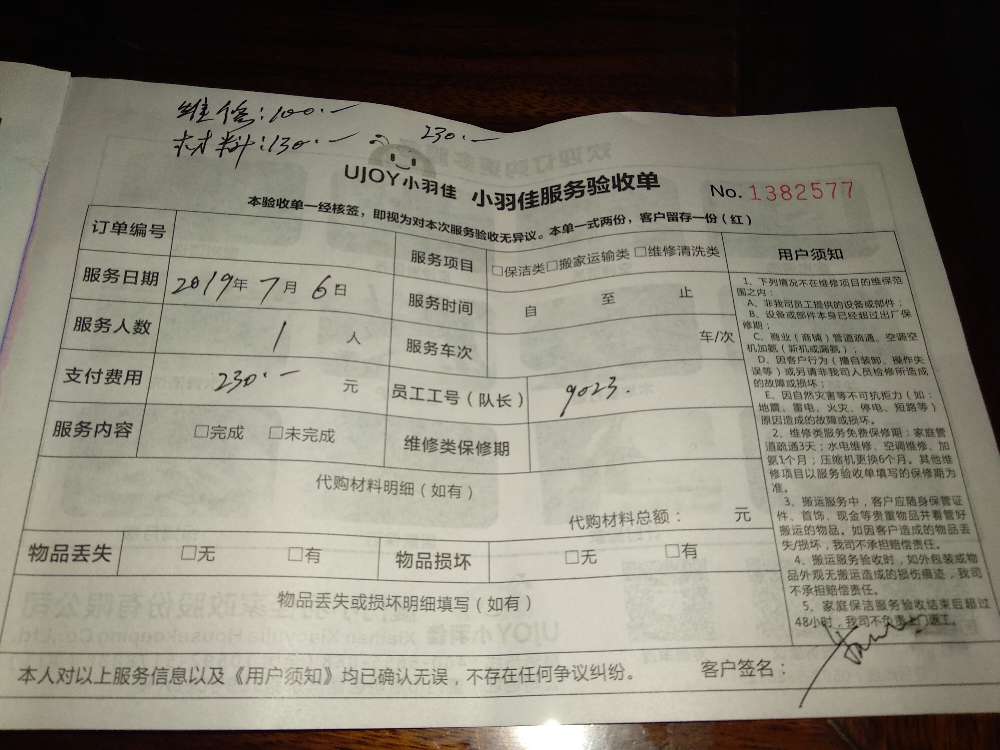 维修:100.—
材料:130.—
230.—
UJOY小羽佳 小羽佳服务验收单
No.1382577
本验收单一经核签，即视为对本次服务验收无异议。本单一式两份，客户留存一份（红）
订单编号
服务项目 □保洁类□搬家运输类 □维修清洗类
服务日期 2019年7月6日
服务时间 自 至 止
服务人数 1 人
服务车次 车/次
支付费用 230.— 元
员工工号（队长） 9023.
服务内容 □完成 □未完成
维修类保修期
代购材料明细（如有）
代购材料总额： 元
物品丢失 □无 □有
物品损坏 □无 □有
物品丢失或损坏明细填写（如有）
用户须知
1、下列情况不在维修项目的维保范
围之内：
A、非我司员工提供的设备或部件；
B、设备或部件本身已经超过出厂保
修期；
C、商业（商铺）管道疏通、空调空
机加氨（新机或漏氨）；
D、因客户行为（擅自装卸、操作失
误等）或另请非我司人员检修所造成
的故障或损坏；
E、因自然灾害等不可抗拒力（如：
地震、雷电、火灾、停电、短路等）
原因造成的故障或损坏。
2、维修类服务免费保修期：家庭管
道疏通3天；水电维修、空调维修、加
氨1个月；压缩机更换6个月。其他维
修项目以服务验收单填写的保修期为
准。
3、搬运服务中，客户应随身保管证
件、首饰、现金等贵重物品并看管好
搬运的物品。如因客户造成的物品丢
失/损坏，我司不承担赔偿责任。
4、搬运服务验收时，如外包装或物
品外观无搬运造成的损伤痕迹，我司
不承担赔偿责任。
5、家庭保洁服务验收结束后超过
48小时，我司不负责上门返工。
本人对以上服务信息以及《用户须知》均已确认无误，不存在任何争议纠纷。
客户签名：